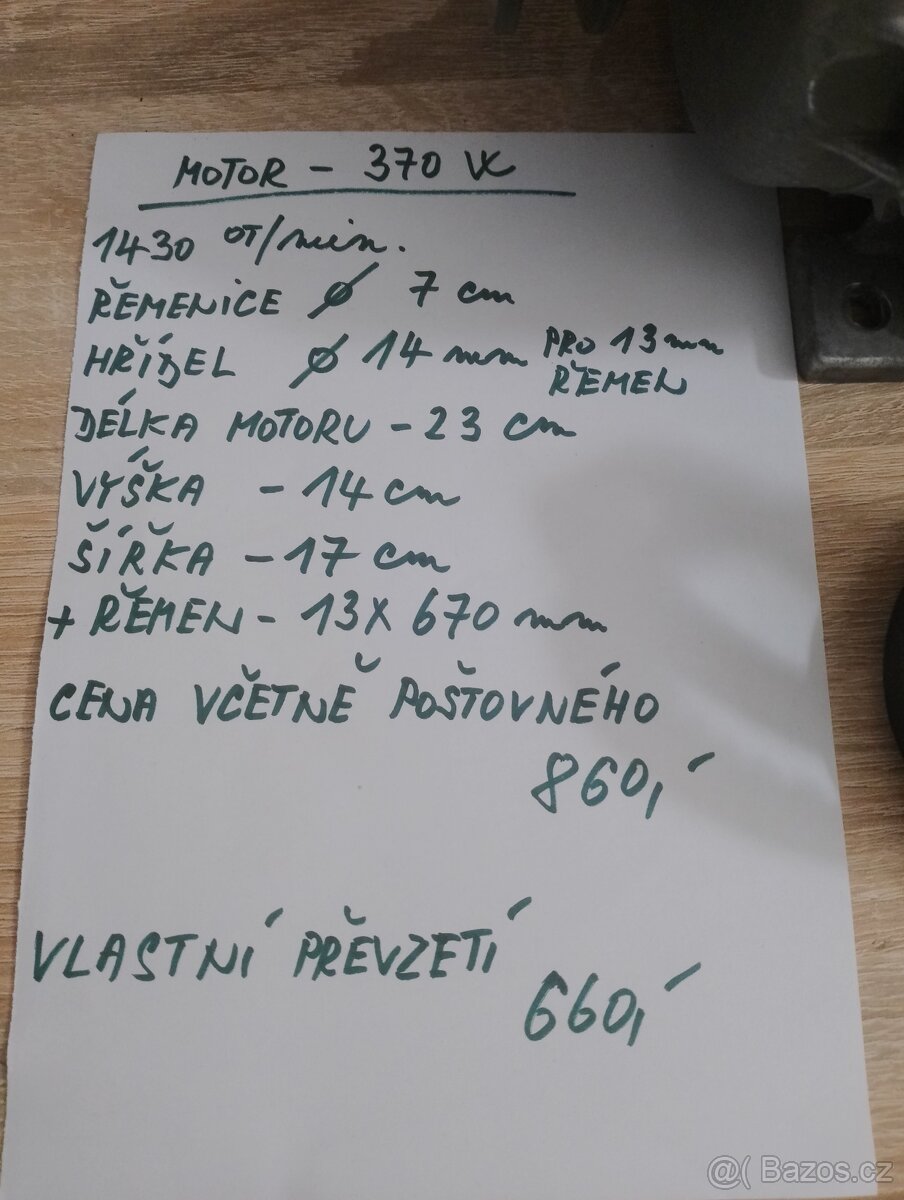 MOTOR - 370 W
1430 OT/min.
ŘEMENICE ø 7 cm
HŘÍDEL ø 14 mm PRO 13 mm
ŘEMEN
DÉLKA MOTORU - 23 cm
VÝŠKA - 14 cm
ŠÍŘKA - 17 cm
+ ŘEMEN - 13X 670 mm
CENA VČETNĚ POŠTOVNÉHO
860,-
VLASTNÍ PŘEVZETÍ
660,-
@( Bazos.cz